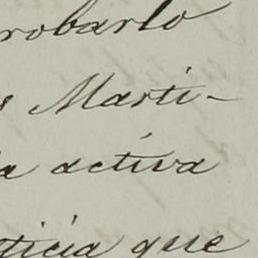 robarlo
s Marti-
a activa
ticia que